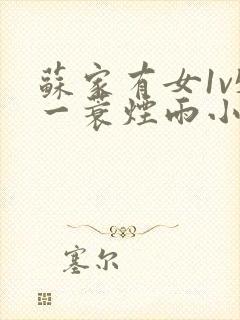 蘇家有女1v
一蓑煙雨小
塞尔